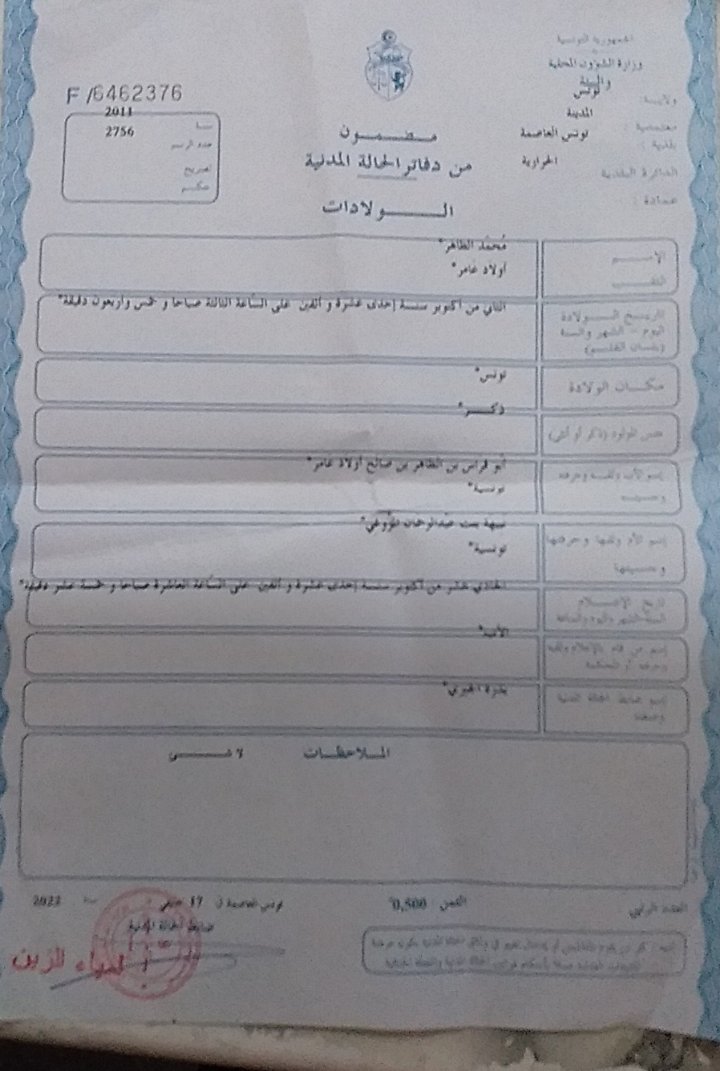 الجمهورية التونسية
وزارة الشؤون المحلية
والبيئة
ولاية : تونس
معتمدية : المدينة
بلدية : تونس العاصمة
الدائرة البلدية الحرايرية
عمادة :
F/6462376
سنة 2011
عدد الرسم 2756
تصريح
حكم
مضمون
من دفاتر الحالة المدنية
الولادات
الاسم محمد الطاهر*
اللقب أولاد عامر*
تاريخ الولادة الثاني من أكتوبر سنة إحدى عشرة و ألفين على الساعة الثالثة صباحا و خمس وأربعون دقيقة*
اليوم - الشهر والسنة
(بلسان القلم)
مكان الولادة تونس*
جنس المولود (ذكر أو أنثى) ذكر*
إسم الأب ولقبه وحرفته أبو فراس بن الطاهر بن صالح أولاد عامر*
وجنسيته تونسية*
إسم الأم ولقبها وحرفتها نبيهة بنت عبدالرحمان
وجنسيتها تونسية*
تاريخ الإعلام الحادي عشر من أكتوبر سنة إحدى عشرة و ألفين على الساعة العاشرة صباحا و خمسة عشر دقيقة*
السنة الشهر واليوم والساعة
إسم من قام بالإعلام ولقبه الأب*
وحرفته أو المحكمة
إسم ضابط الحالة المدنية
وصفته
الملاحظات لا شيء
المعرف الثمن 0,500* تونس العاصمة في 17 جانفي سنة 2022
ضابط الحالة المدنية
لمياء الزين